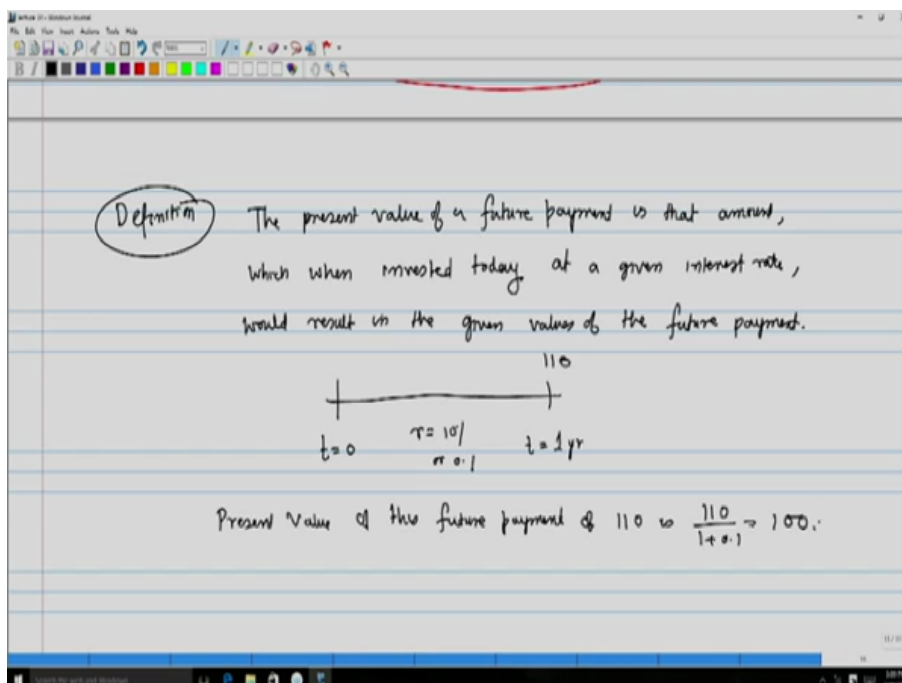 File Edit View Insert Actions Tools Help
B I
Definition
The present value of a future payment is that amount,
which when invested today at a given interest rate,
would result in the given values of the future payment.
110
t=0 r=10/ t=1yr
or 0.1
Present Value of this future payment of 110 is 110/1+0.1 = 100.